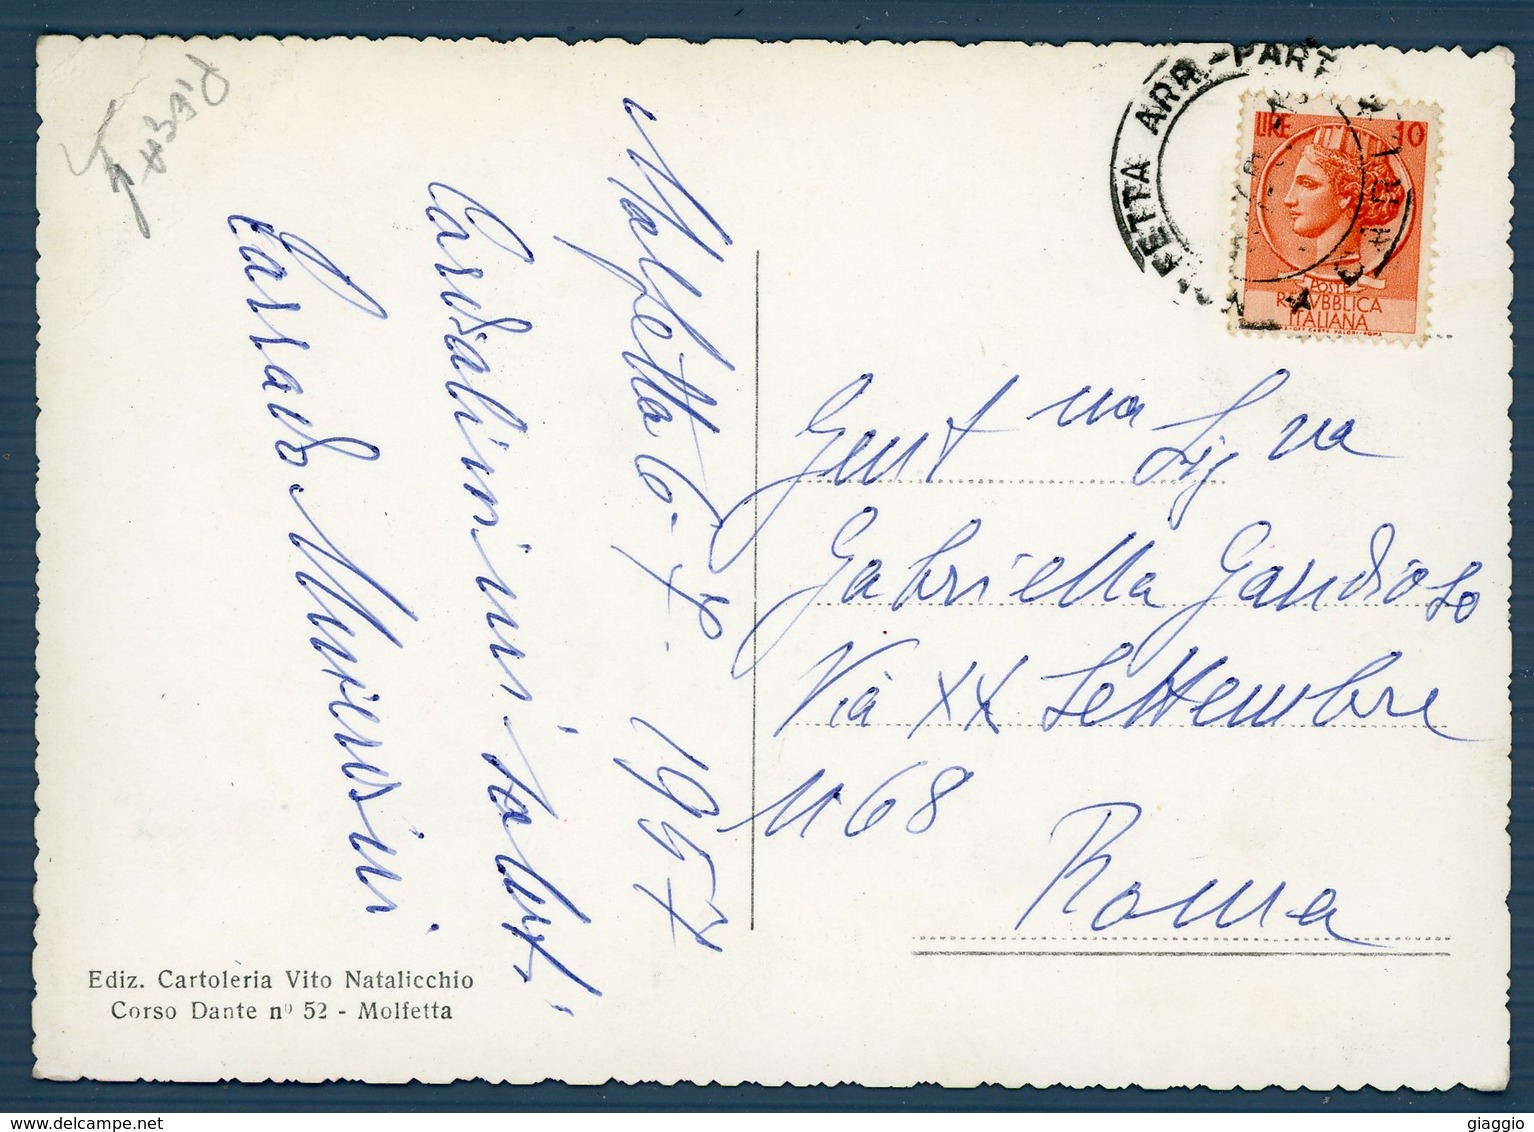 Molfetta 6-7. 1957
Cordialissimi saluti
Corrado
Gent ma Sig na
Gabriella Gaudioso
Via XX Settembre
n 68
Roma
Ediz. Cartoleria Vito Natalicchio
Corso Dante nº 52 - Molfetta
ETTA ARR.-PART
LIRE 10
POSTE
REPVBBLICA
ITALIANA
giaggio
www.delcampe.net